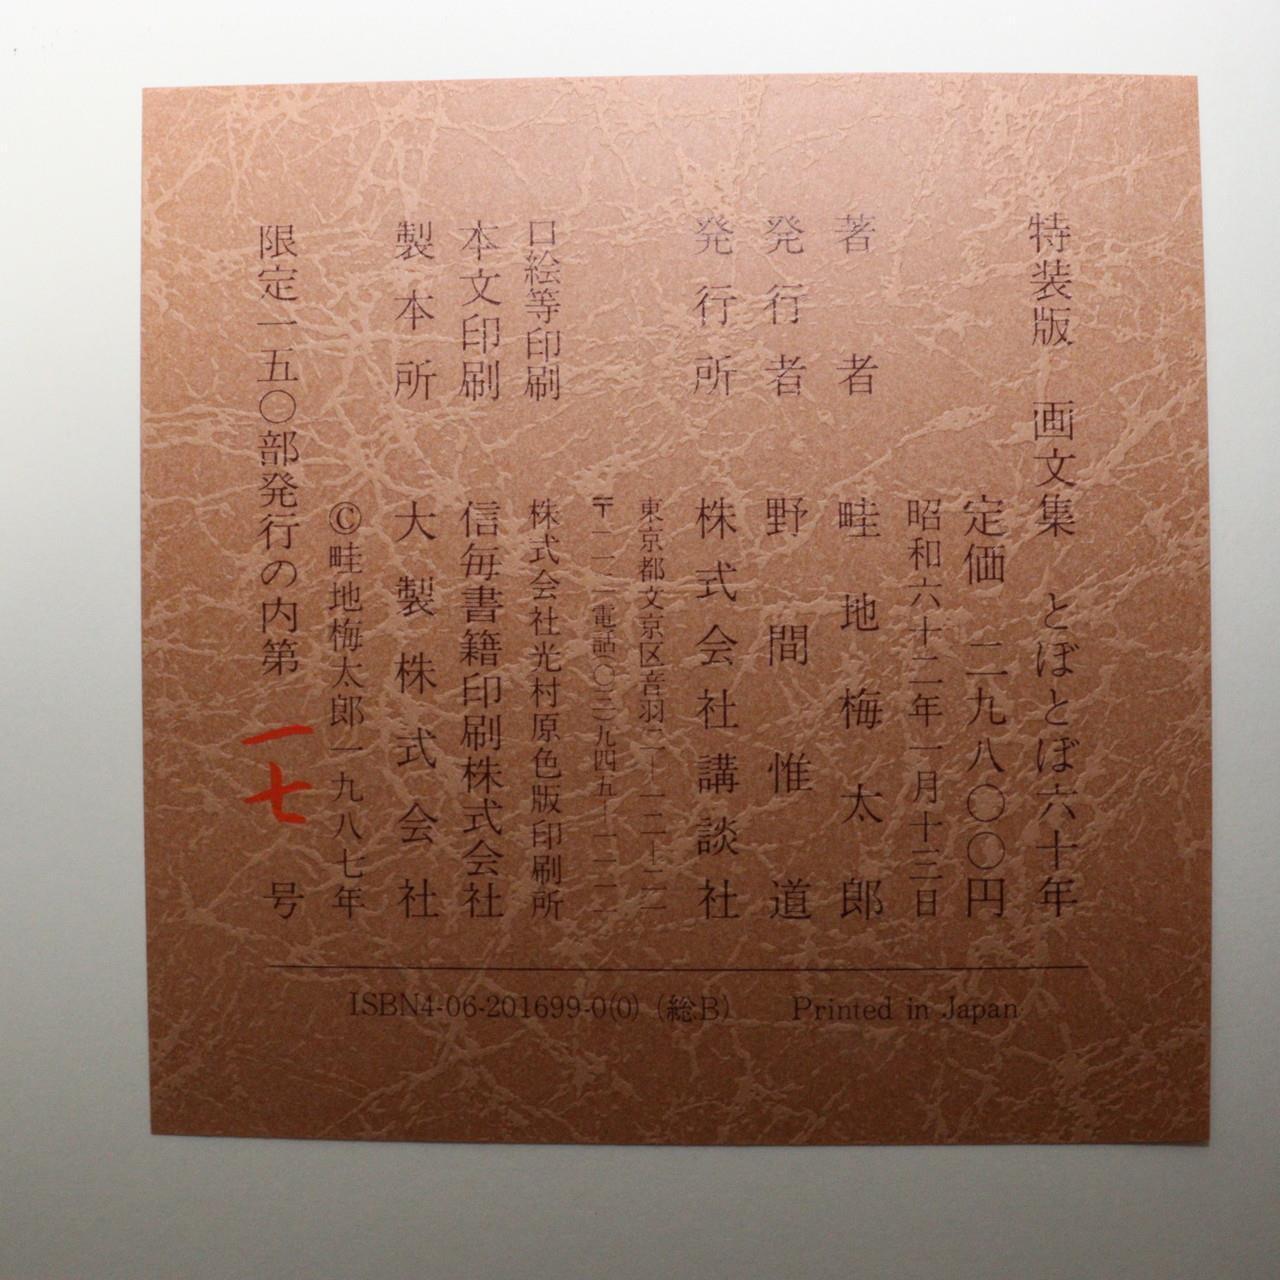 特装版 画文集 とぼとぼ六十年
定価 二九八〇〇円
昭和六十二年一月十三日
著者 畦地梅太郎
発行者 野間惟道
発行所 株式会社講談社
東京都文京区音羽二ー一二ー二一
〒一一二 電話(〇三)九四五ー一一一一
口絵等印刷 株式会社光村原色版印刷所
本文印刷 信毎書籍印刷株式会社
製本所 大製株式会社
©畦地梅太郎一九八七年
限定一五〇部発行の内第 一七 号
ISBN4-06-201699-0(0) (総B) Printed in Japan